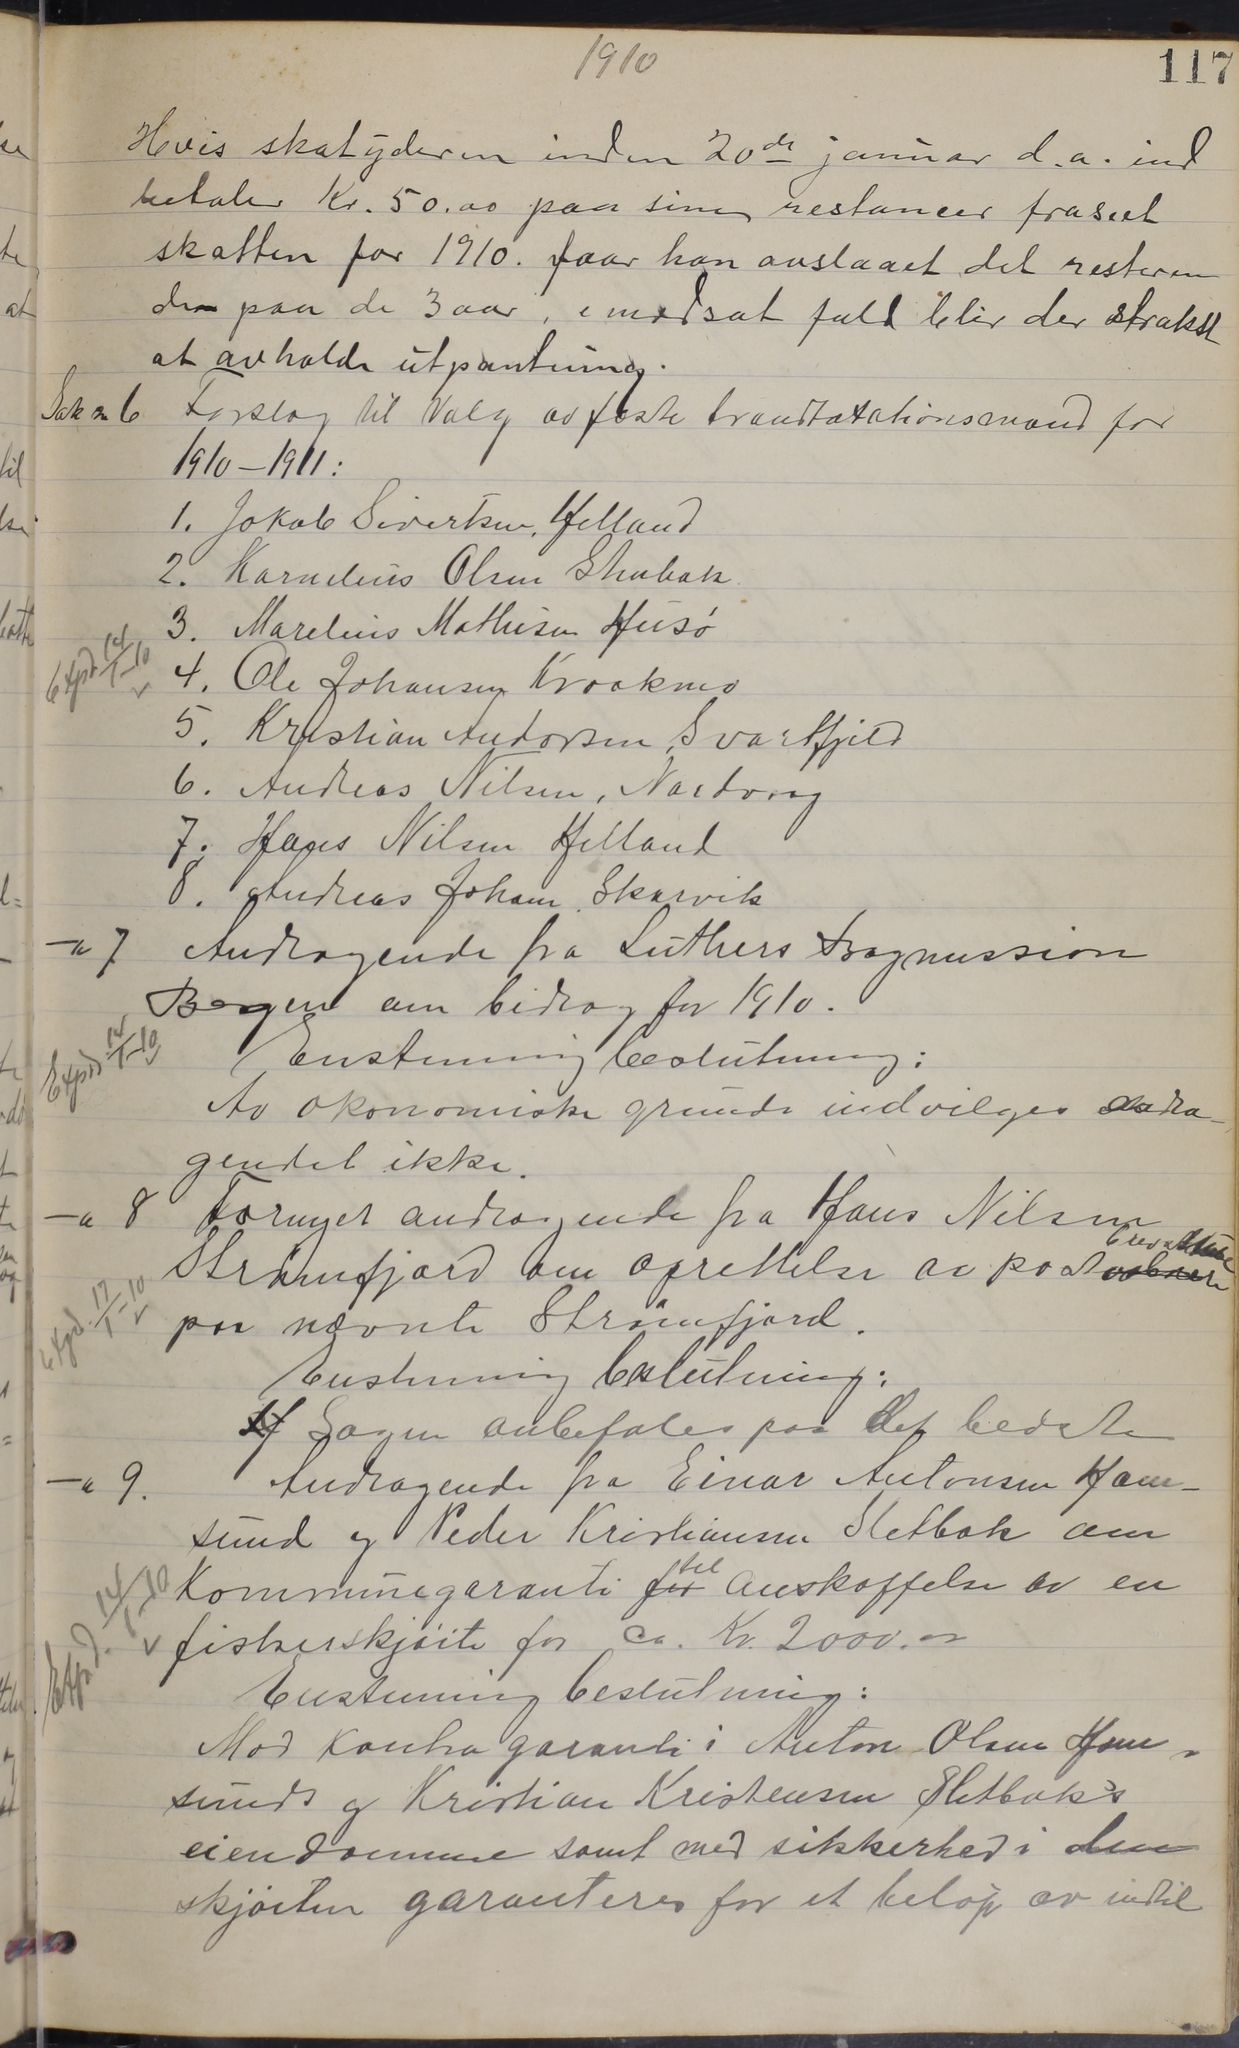 1910
117
Hvis skatyderen inden 20de januar d.a. ind
betaler Kr. 50.00 paa sine restancer fraseet
skatten for 1910. faar han avslaaet det resteren
de paa de 3 aar, i modsat fald blir der strakst
at avholde utpantning.
Sak n 6 Forslag til Valg av faste brandtakstionsmænd for
1910-1911:
1. Jakob Sivertsen, Helland
2. Kornelius Olsen Skubak
3. Marelius Mathisen Husö
4. Ole Johansen Kraakmo
Expd. 14/1-10
5. Kristian Andorsen, Svartfjeld
6. Andreas Nilsen, Nordvaag
7. Hans Nilsen Helland
8. Andreas Johan. Skarvik
-"- 7 Andragende fra Luthers
Bergen om bidrag for 1910.
Expd 14/1-10
Enstemmig beslutning:
Av økonomiske grunde indvilges andra-
gendet ikke.
-"- 8 Fornyet andragende fra Hans Nilsen
Strömfjord om oprettelse av post
paa nævnte Strömfjord.
Expd. 17/1-10
Enstemmig beslutning:
Sagen anbefales paa det bedste
-"- 9. Andragende fra Einar Antonsen Ham-
sund og Peder Kristiansen Sletbak om
Kommunegaranti for til anskaffelse av en
Expd. 14/1-10
fiskerskjöite for ca. Kr. 2000.00
Enstemmig beslutning:
Mod kontragaranti i Anton Olsen Ham-
sunds og Kristian Kristensen Sletbak's
eiendomme samt med sikkerhed i den
skjöiten garanteres for et belöp av indtil